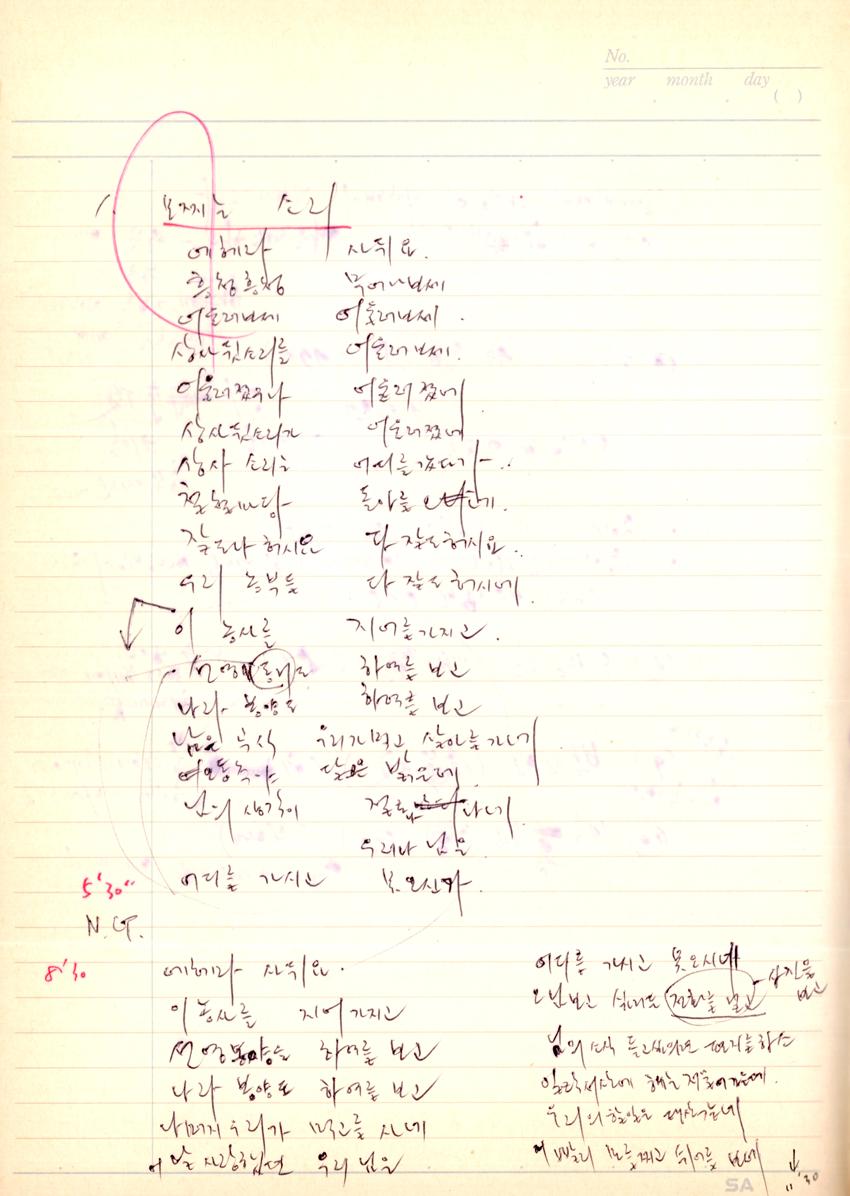 No.
year month day
( )
1. 모찌는 소리
에헤라 사뒤요.
흥청흥청 묶어나보세
어울러보세 어울러보세.
상사뒷소리를 어울러보세.
어울러졌구나 어울러졌네
상사뒷소리가 어울러졌네
상사 소리는 어데를 갔다가
돌아를
잘도나 허시요 다 잘도허시요.
우리 농부들 다 잘도 허시네.
이 농사를 지어를가지고.
하여를 보고
나라 봉양도 하여를 보고
남은 곡식 우리가먹고 살아를가네
달은 밝은데
님의 생각이 절로 나네.
우리나 님은
어디를 가시고 못오신가.
5'30"
N.G.
8'30
에헤라 사뒤요.
이 농사를 지어 가지고
선영봉양을 하여를 보고
나라 봉양도 하여를 보고
나머지 우리가 먹고를 사네
우리 님은
어디를 가시고 못오시네
사진을 보고
님의 소식 듣고싶으면 편지를하소
우리의 할일은
어 빨리 모를찌고
11'30
SA